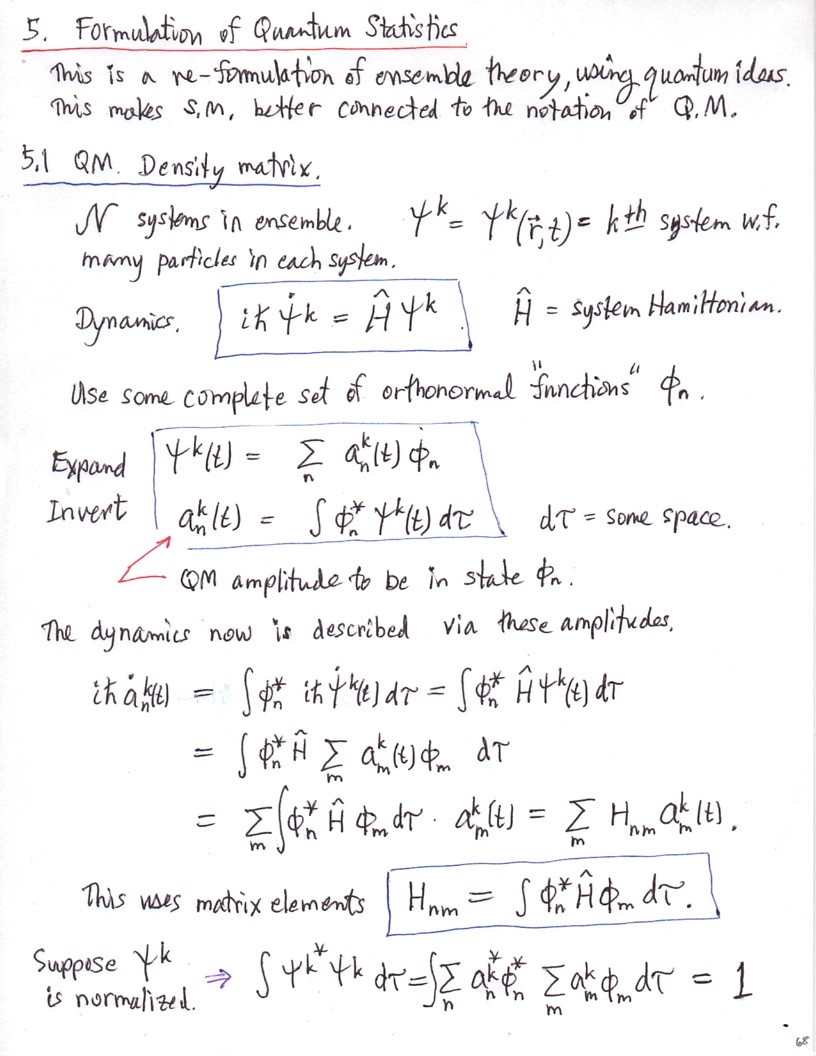 5. Formulation of Quantum Statistics
This is a re-formulation of ensemble theory, using quantum ideas.
This makes S.M. better connected to the notation of Q.M.
5.1 QM. Density matrix.
N systems in ensemble. ψᵏ = ψᵏ(r⃗,t) = kth system w.f.
many particles in each system.
Dynamics. iħ ψ̇ᵏ = Ĥ ψᵏ. Ĥ = system Hamiltonian.
Use some complete set of orthonormal "functions" ϕₙ.
Expand ψᵏ(t) = Σₙ aₙᵏ(t) ϕₙ
Invert aₙᵏ(t) = ∫ ϕₙ* ψᵏ(t) dτ dτ = some space.
QM amplitude to be in state ϕₙ.
The dynamics now is described via these amplitudes.
iħ ȧₙᵏ(t) = ∫ ϕₙ* iħ ψ̇ᵏ(t) dτ = ∫ ϕₙ* Ĥ ψᵏ(t) dτ
= ∫ ϕₙ* Ĥ Σₘ aₘᵏ(t) ϕₘ dτ
= Σₘ ∫ ϕₙ* Ĥ ϕₘ dτ · aₘᵏ(t) = Σₘ Hₙₘ aₘᵏ(t).
This uses matrix elements Hₙₘ = ∫ ϕₙ* Ĥ ϕₘ dτ.
Suppose ψᵏ
is normalized. ⇒ ∫ ψᵏ* ψᵏ dτ = ∫ Σₙ aₙᵏ* ϕₙ* Σₘ aₘᵏ ϕₘ dτ = 1
68